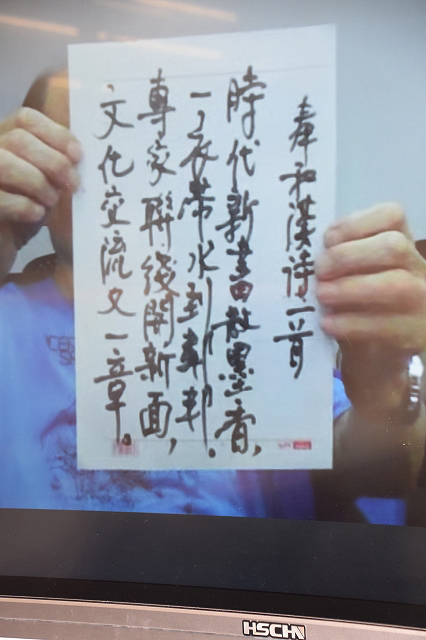 奉和漢詩一首
時代新書散墨香，
一衣帶水到鄰邦.
專家聯綫開新面，
文化交流又一章。